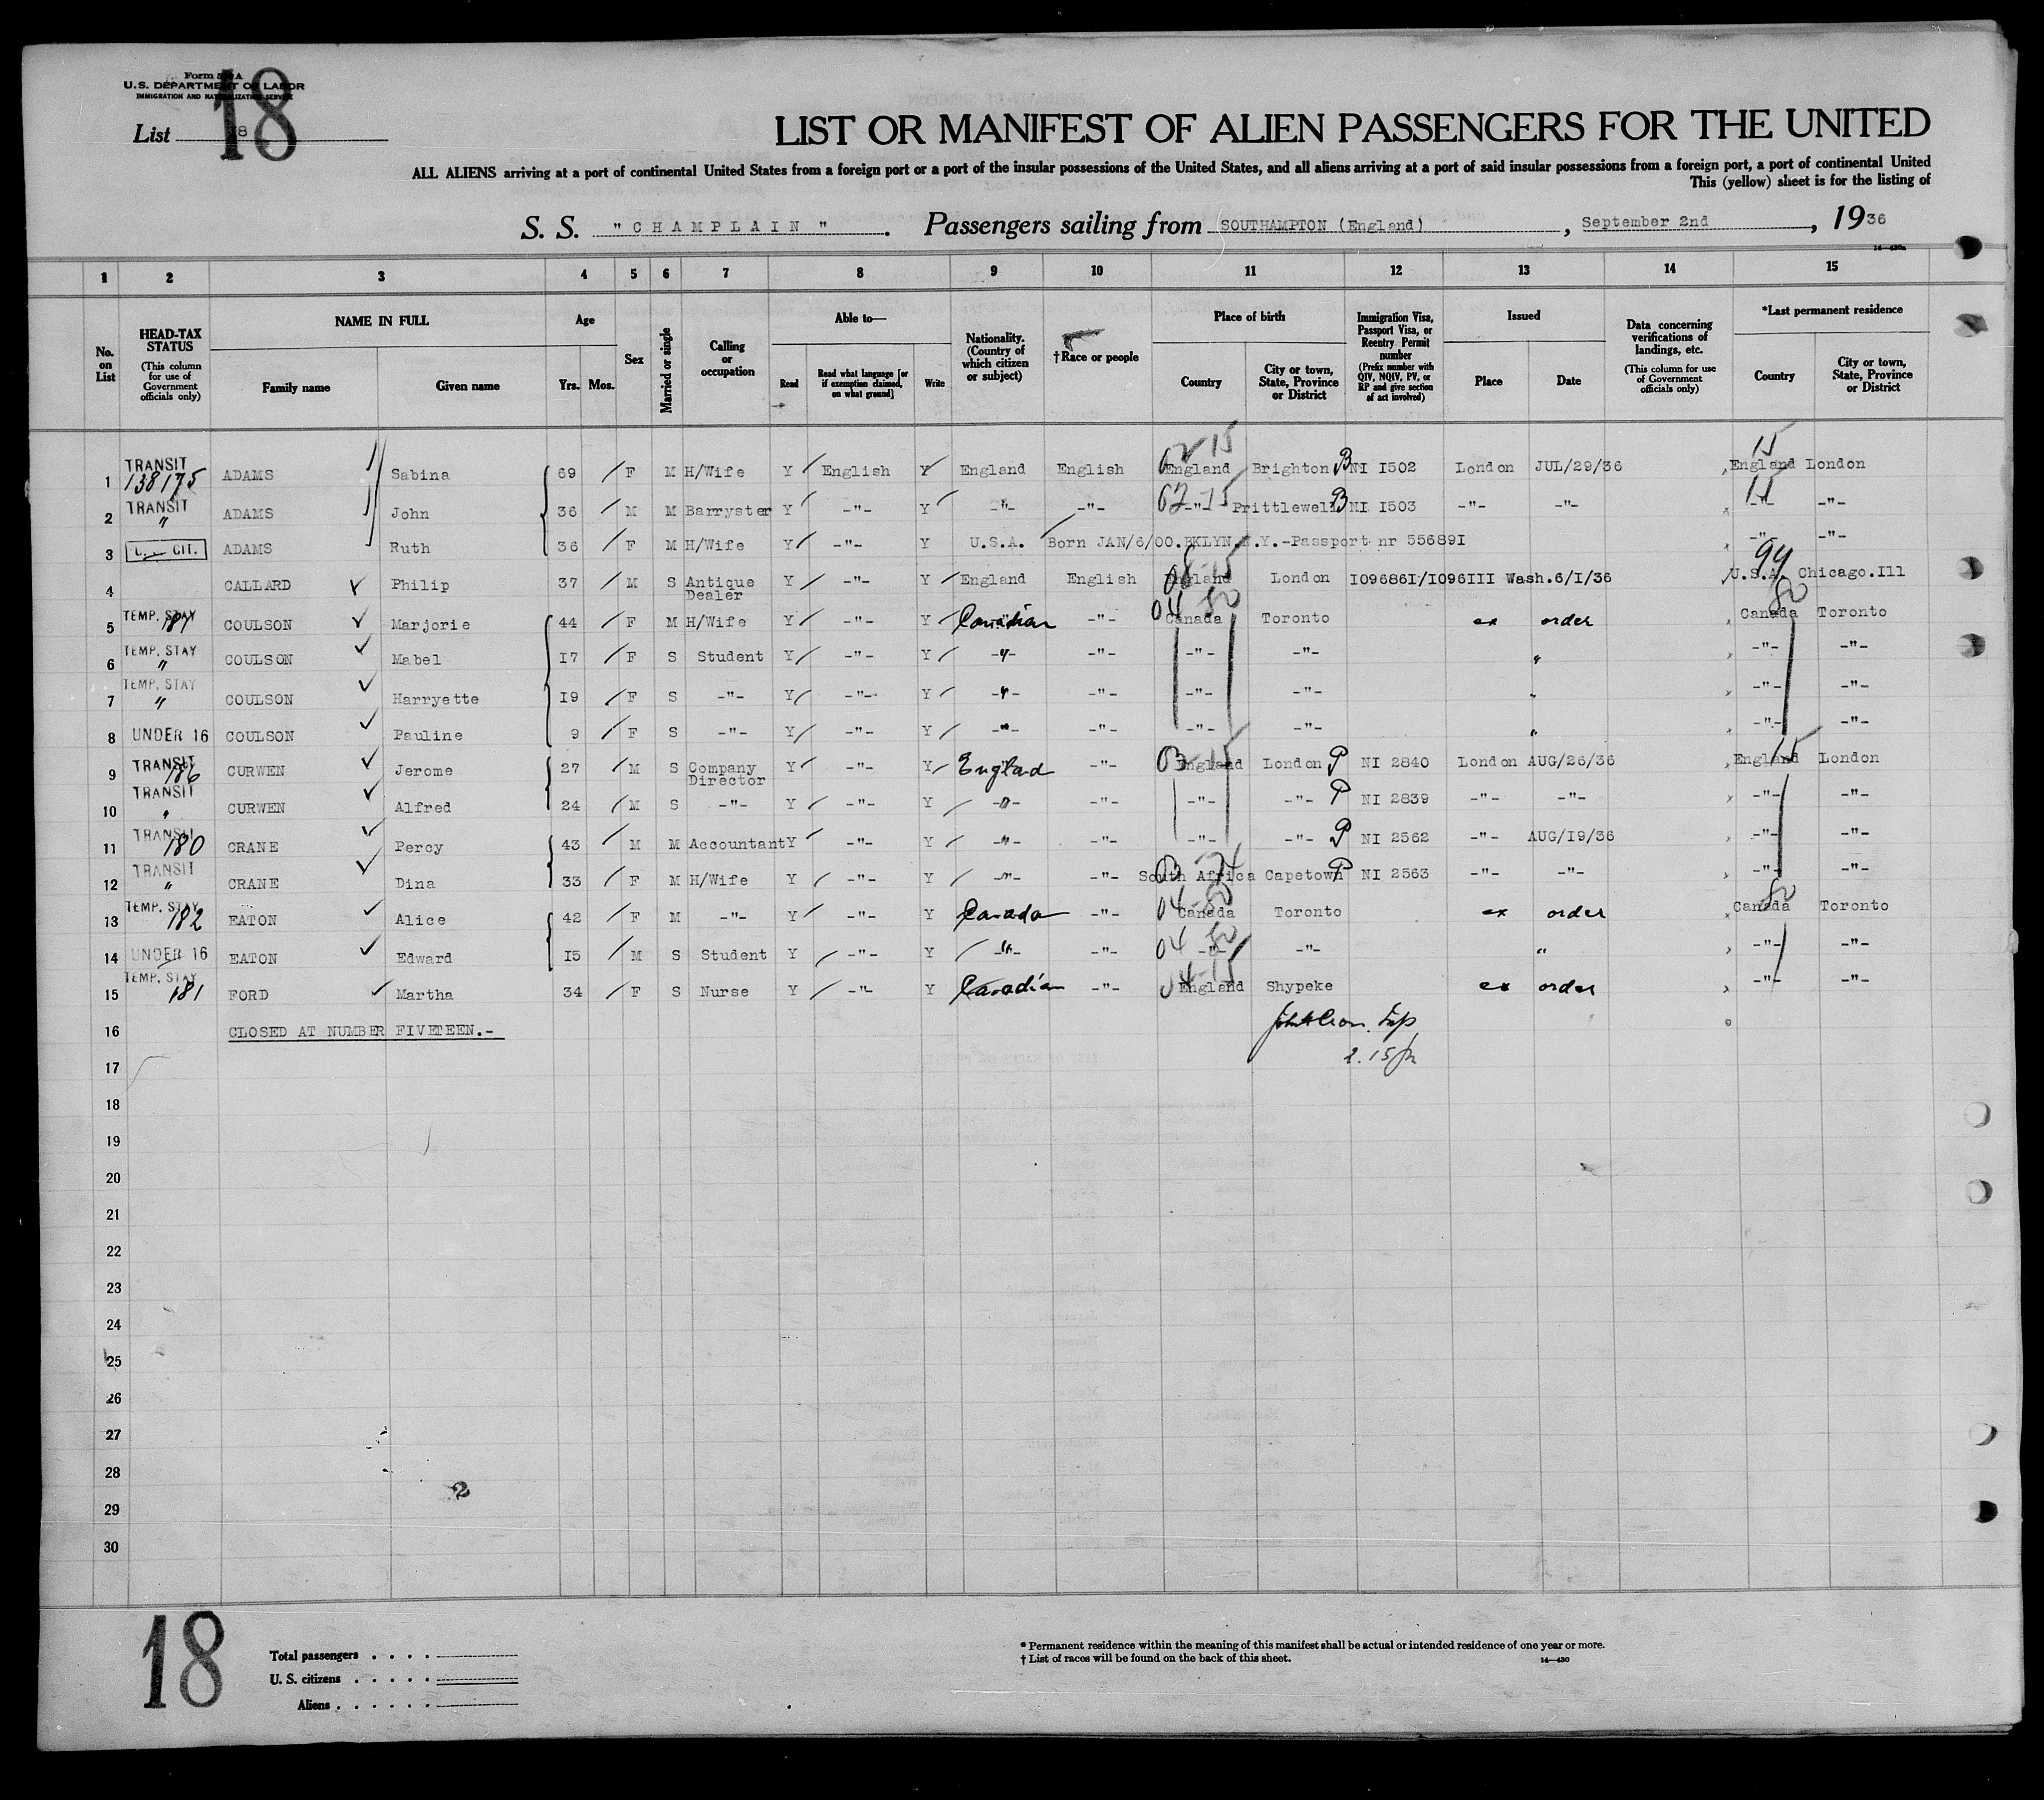 Form 500 A
U.S. DEPARTMENT OF LABOR
IMMIGRATION AND NATURALIZATION SERVICE
List 18
18
LIST OR MANIFEST OF ALIEN PASSENGERS FOR THE UNITED
ALL ALIENS arriving at a port of continental United States from a foreign port or a port of the insular possessions of the United States, and all aliens arriving at a port of said insular possessions from a foreign port, a port of continental United
This (yellow) sheet is for the listing of
S. S. "CHAMPLAIN". Passengers sailing from SOUTHAMPTON (England), September 2nd, 1936
1 2 3 4 5 6 7 8 9 10 11 12 13 14 15
No. on List
HEAD-TAX STATUS (This column for use of Government officials only)
NAME IN FULL
Family name Given name
Age
Yrs. Mos.
Sex
Married or single
Calling or occupation
Able to—
Read Read what language [or if exemption claimed, on what ground] Write
Nationality. (Country of which citizen or subject)
†Race or people
Place of birth
Country City or town, State, Province or District
Immigration Visa, Passport Visa, or Reentry Permit number (Prefix number with QIV, NQIV, PV, or RP and give section of act involved)
Issued
Place Date
Data concerning verifications of landings, etc. (This column for use of Government officials only)
*Last permanent residence
Country City or town, State, Province or District
1 TRANSIT 138175 ADAMS Sabina 69 F M H/Wife Y English Y England English 02-15 England Brighton B NI I502 London JUL/29/36 15 England London
2 TRANSIT " ADAMS John 36 M M Barryster Y -"- Y -"- -"- 02-15 -"- Prittlewell B NI I503 -"- -"- 15 -"- -"-
3 CIT. ADAMS Ruth 36 F M H/Wife Y -"- Y U.S.A. Born JAN/6/00.BKLYN.N.Y.-Passport nr 55689I -"- -"-
4 CALLARD Philip 37 M S Antique Dealer Y -"- Y England English 08-15 England London I09686I/I096III Wash.6/I/36 99 U.S.A. Chicago.Ill
5 TEMP. STAY 187 COULSON Marjorie 44 F M H/Wife Y -"- Y Canadian -"- 04 80 Canada Toronto ex order 80 Canada Toronto
6 TEMP. STAY " COULSON Mabel I7 F S Student Y -"- Y -"- -"- -"- -"- " -"- -"-
7 TEMP. STAY " COULSON Harryette I9 F S -"- Y -"- Y -"- -"- -"- -"- " -"- -"-
8 UNDER 16 COULSON Pauline 9 F S -"- Y -"- Y -"- -"- -"- -"- " -"- -"-
9 TRANSIT 186 CURWEN Jerome 27 M S Company Director Y -"- Y Englad -"- 03-15 England London P NI 2840 London AUG/26/36 15 England London
10 TRANSIT " CURWEN Alfred 24 M S -"- Y -"- Y -"- -"- -"- -"- P NI 2839 -"- -"- -"- -"-
11 TRANSIT 180 CRANE Percy 43 M M Accountant Y -"- Y -"- -"- -"- -"- P NI 2562 -"- AUG/I9/36 -"- -"-
12 TRANSIT " CRANE Dina 33 F M H/Wife Y -"- Y -"- -"- 03-74 South Africa Capetown P NI 2563 -"- -"- -"- -"-
13 TEMP. STAY 182 EATON Alice 42 F M -"- Y -"- Y Canada -"- 04-80 Canada Toronto ex order 80 Canada Toronto
14 UNDER 16 EATON Edward I5 M S Student Y -"- Y -"- -"- 04 80 -"- -"- " -"- -"-
15 TEMP. STAY 181 FORD Martha 34 F S Nurse Y -"- Y Canadian -"- 04-15 England Shypeke ex order -"- -"-
16 CLOSED AT NUMBER FIVETEEN.-
17
18
19
20
21
22
23
24
25
26
27
28
29
30
2
18
Total passengers
U. S. citizens
Aliens
* Permanent residence within the meaning of this manifest shall be actual or intended residence of one year or more.
† List of races will be found on the back of this sheet.
14—430